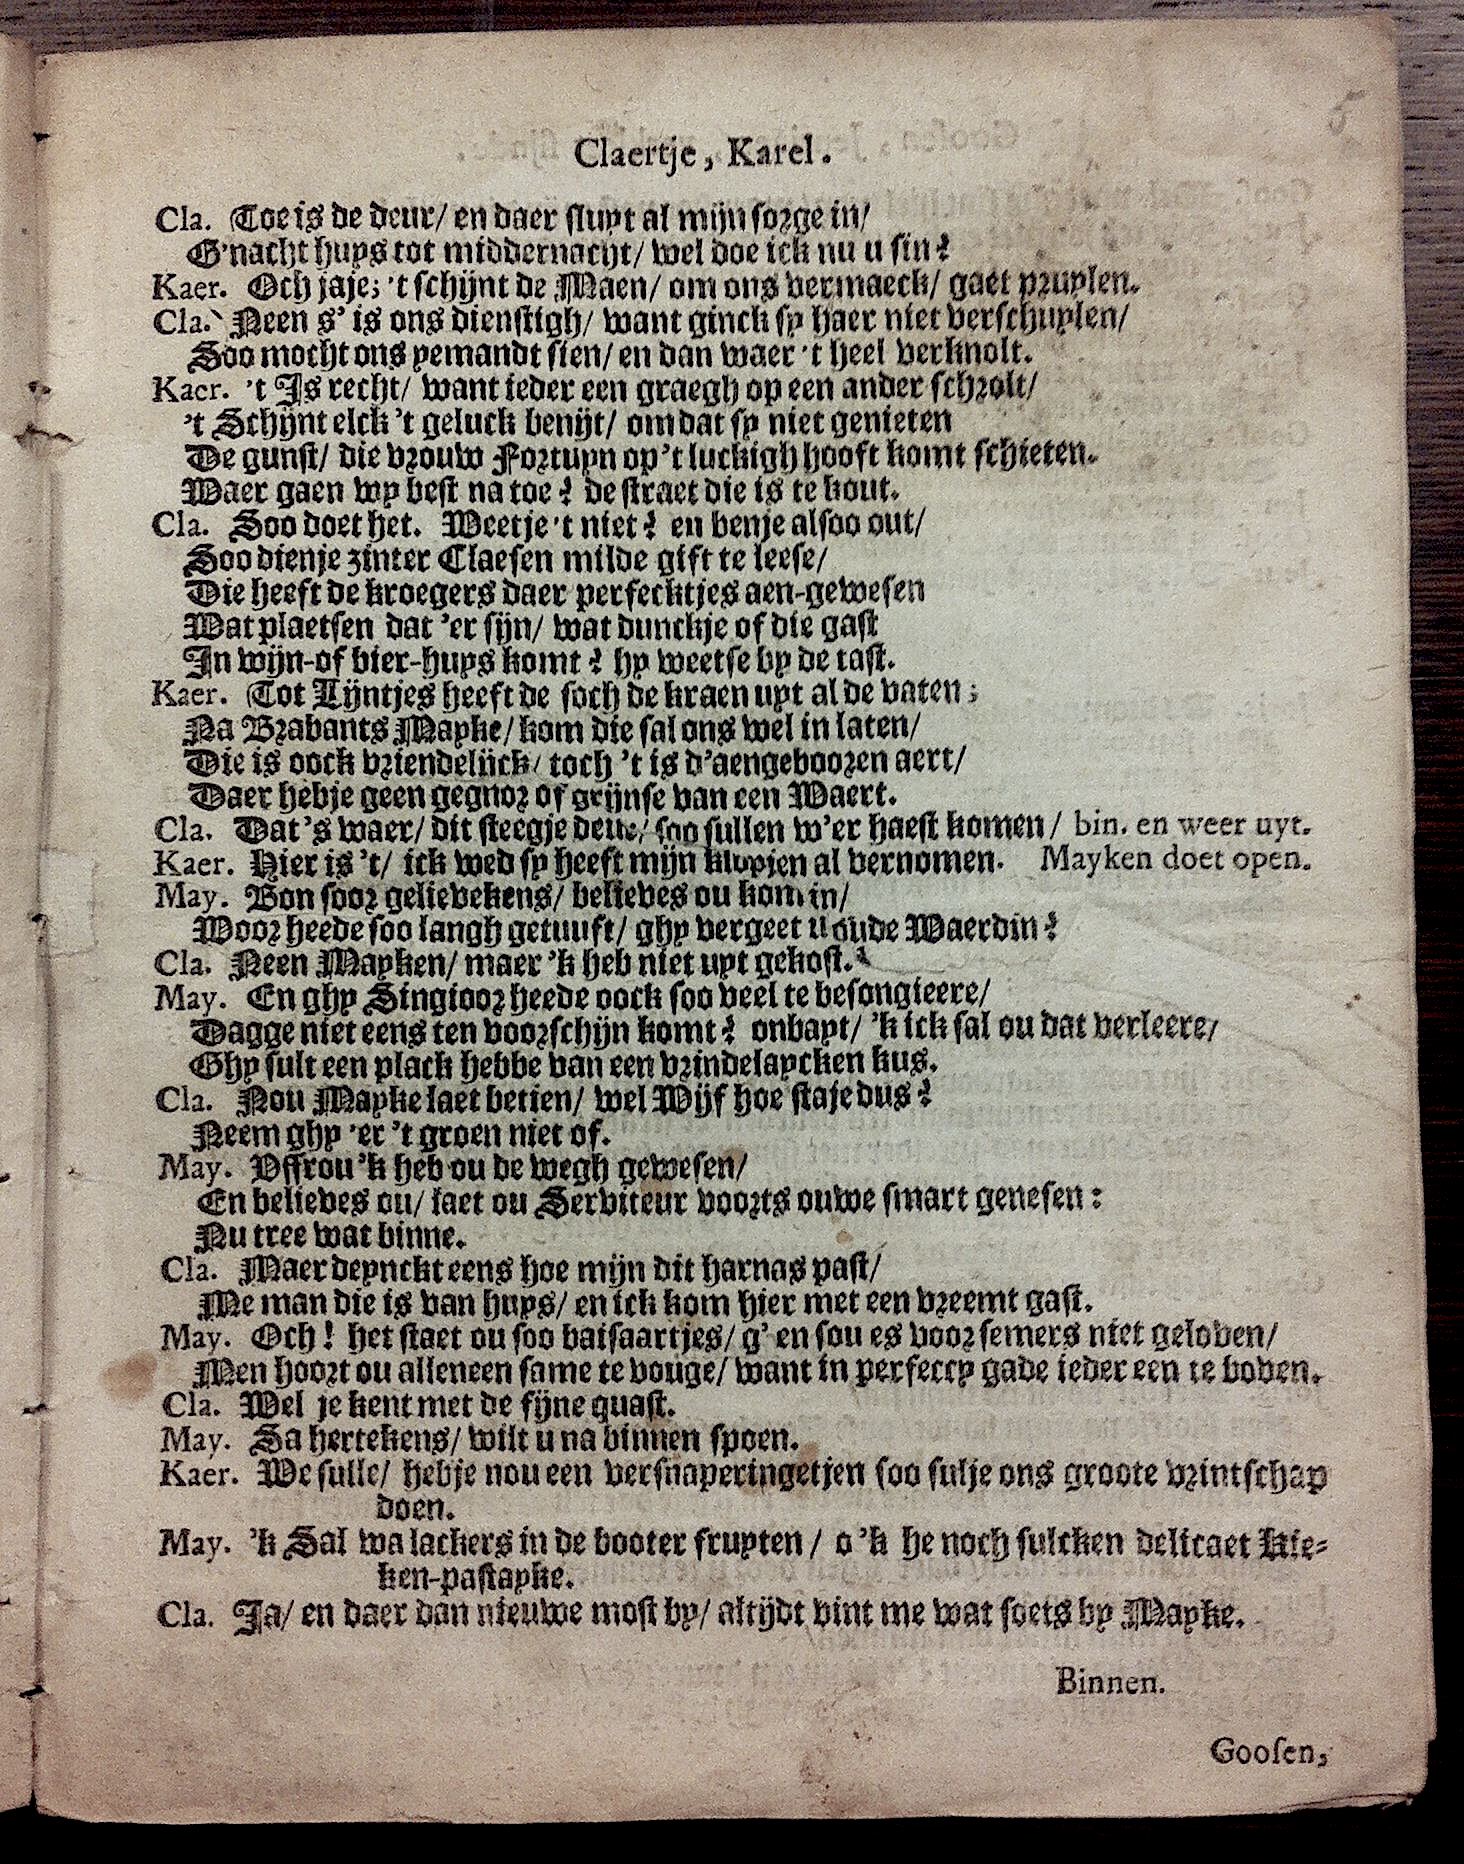 5
Claertje, Karel.
Cla. Toe is de deur/ en daer sluyt al mijn sorge in/
G'nacht huys tot middernacht/ wel doe ick nu u sin?
Kaer. Och jaje; 't schijnt de Maen/ om ons vermaeck/ gaet pruylen.
Cla. Neen s' is ons dienstigh/ want ginck sy haer niet verschuylen/
Soo mocht ons yemandt sien/ en dan waer 't heel verknolt.
Kaer. 't Is recht/ want ieder een graegh op een ander schrolt/
't Schijnt elck 't geluck benijt/ om dat sy niet genieten
De gunst/ die vrouw Fortuyn op 't luckigh hooft komt schieten.
Waer gaen wy best na toe? de straet die is te kout.
Cla. Soo doet het. Weetje 't niet? en benje alsoo out/
Soo dienje zinter Claesen milde gift te leese/
Die heeft de kroegers daer perfecktjes aen-gewesen
Wat plaetsen dat 'er sijn/ wat dunckje of die gast
In wijn-of bier-huys komt? hy weetse by de tast.
Kaer. Tot Lijntjes heeft de soch de kraen uyt al de vaten;
Na Brabants Mayke/ kom die sal ons wel in laten/
Die is oock vriendelijck/ toch 't is d'aengebooren aert/
Daer hebje geen gegnor of grijnse van een Waert.
Cla. Dat's waer/ dit steegje deur/ soo sullen w'er haest komen/ bin. en weer uyt.
Kaer. Hier is 't/ ick wed sy heeft mijn klopjen al vernomen. Mayken doet open.
May. Bon soor gelievekens/ believes ou kom in/
Woor heede soo langh getuuft/ ghy vergeet u oude Waerdin?
Cla. Neen Mayken/ maer 'k heb niet uyt gekost.
May. En ghy Singioor heede oock soo veel te besongieere/
Dagge niet eens ten voorschijn komt? onbayt/ 'k ick sal ou dat verleere/
Ghy sult een plack hebbe van een vrindelaycken kus.
Cla. Nou Mayke laet betien/ wel Wijf hoe staje dus?
Neem ghy 'er 't groen niet of.
May. Yffrou 'k heb ou de wegh gewesen/
En believes ou/ laet ou Serviteur voorts ouwe smart genesen:
Nu tree wat binne.
Cla. Maer deynckt eens hoe mijn dit harnas past/
Me man die is van huys/ en ick kom hier met een vreemt gast.
May. Och! het staet ou soo baisaartjes/ g' en sou es voor semers niet geloven/
Men hoort ou alleneen same te vouge/ want in perfeccy gade ieder een te boven.
Cla. Wel je kent met de fijne quast.
May. Sa hertekens/ wilt u na binnen spoen.
Kaer. We sulle/ hebje nou een versnaperingetjen soo sulje ons groote vrintschap
doen.
May. 'k Sal wa lackers in de booter fruyten/ o 'k he noch sulcken delicaet Kie-
ken-pastayke.
Cla. Ja/ en daer dan nieuwe most by/ altijdt vint me wat soets by Mayke.
Binnen.
Goosen,